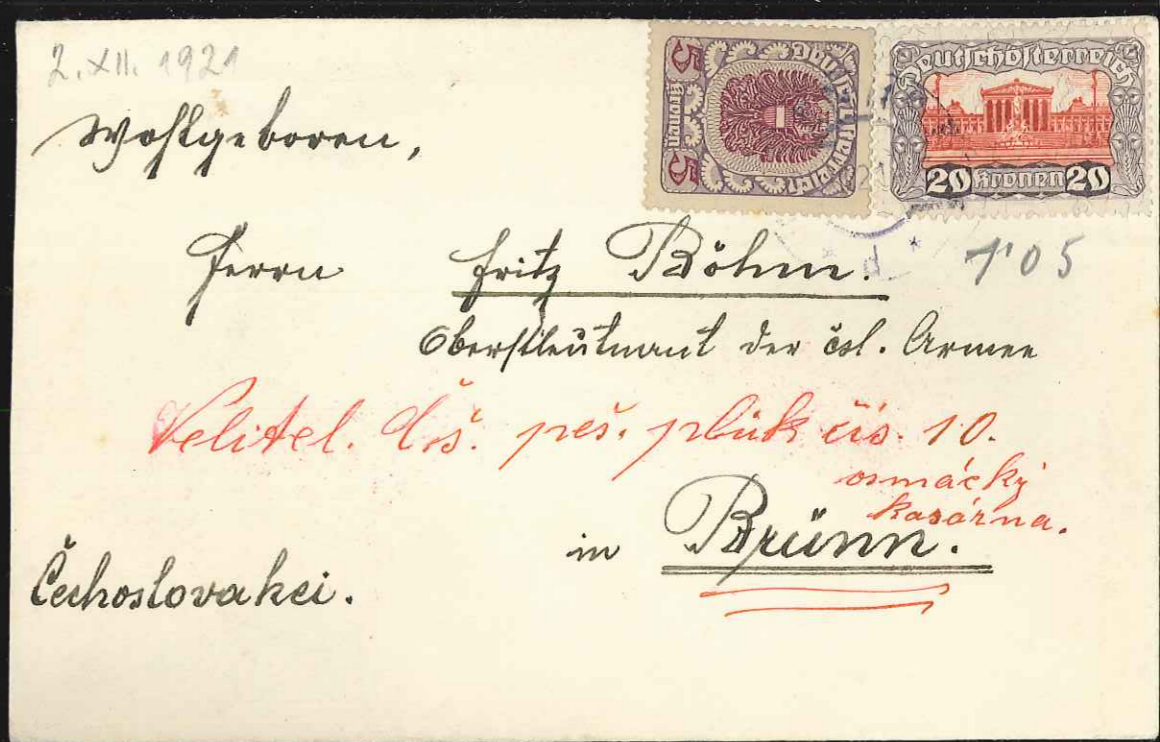 2. XII. 1921
5 Kronen 5
Deutschösterreich
Deutschösterreich
20 Kronen 20
Wohlgeboren,
Herrn Fritz Böhm.
1'05
d *
Oberstleutnant der čsl. Armee
Velitel. č.š. peš. plůk čís. 10.
osmácký
kasárna.
in Brünn.
Čechoslovakei.